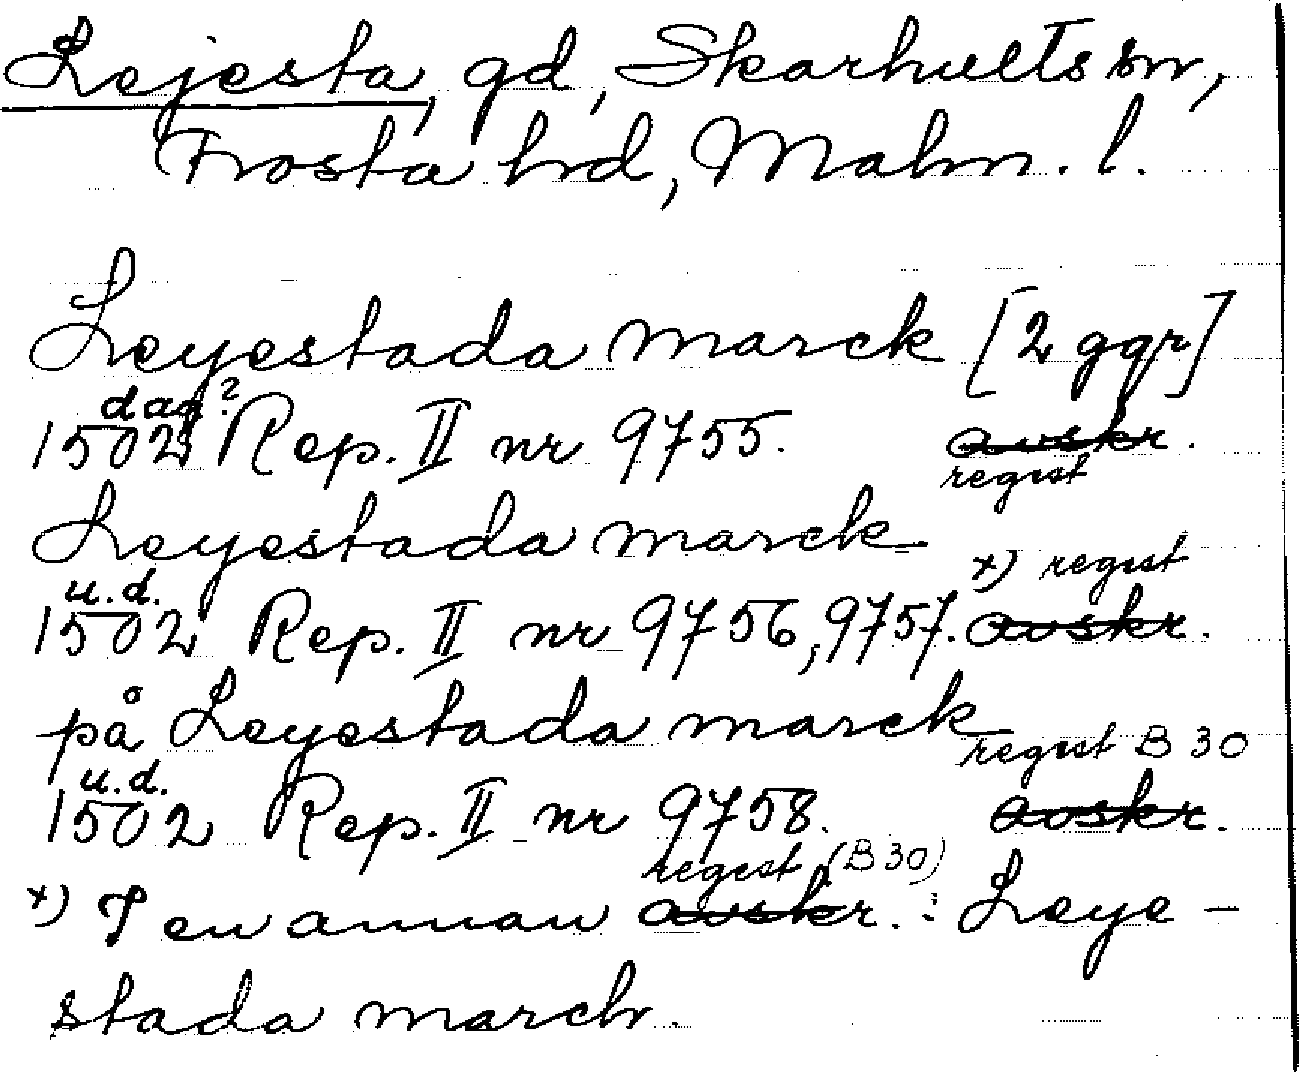 Lejesta, gd, Skarhults sn,
Frosta hd, Malm. l.
Leyestada marck [2 ggr]
dag?
1502 Rep. II nr 9755. avskr.
regest
Leyestada marck
x) regest
u.d.
1502 Rep. II nr 9756, 9757. avskr.
på Leyestada marck
regest B 30
u.d.
1502 Rep. II nr 9758. avskr.
regest (B 30)
x) I en annan avskr. : Leye-
stada march.